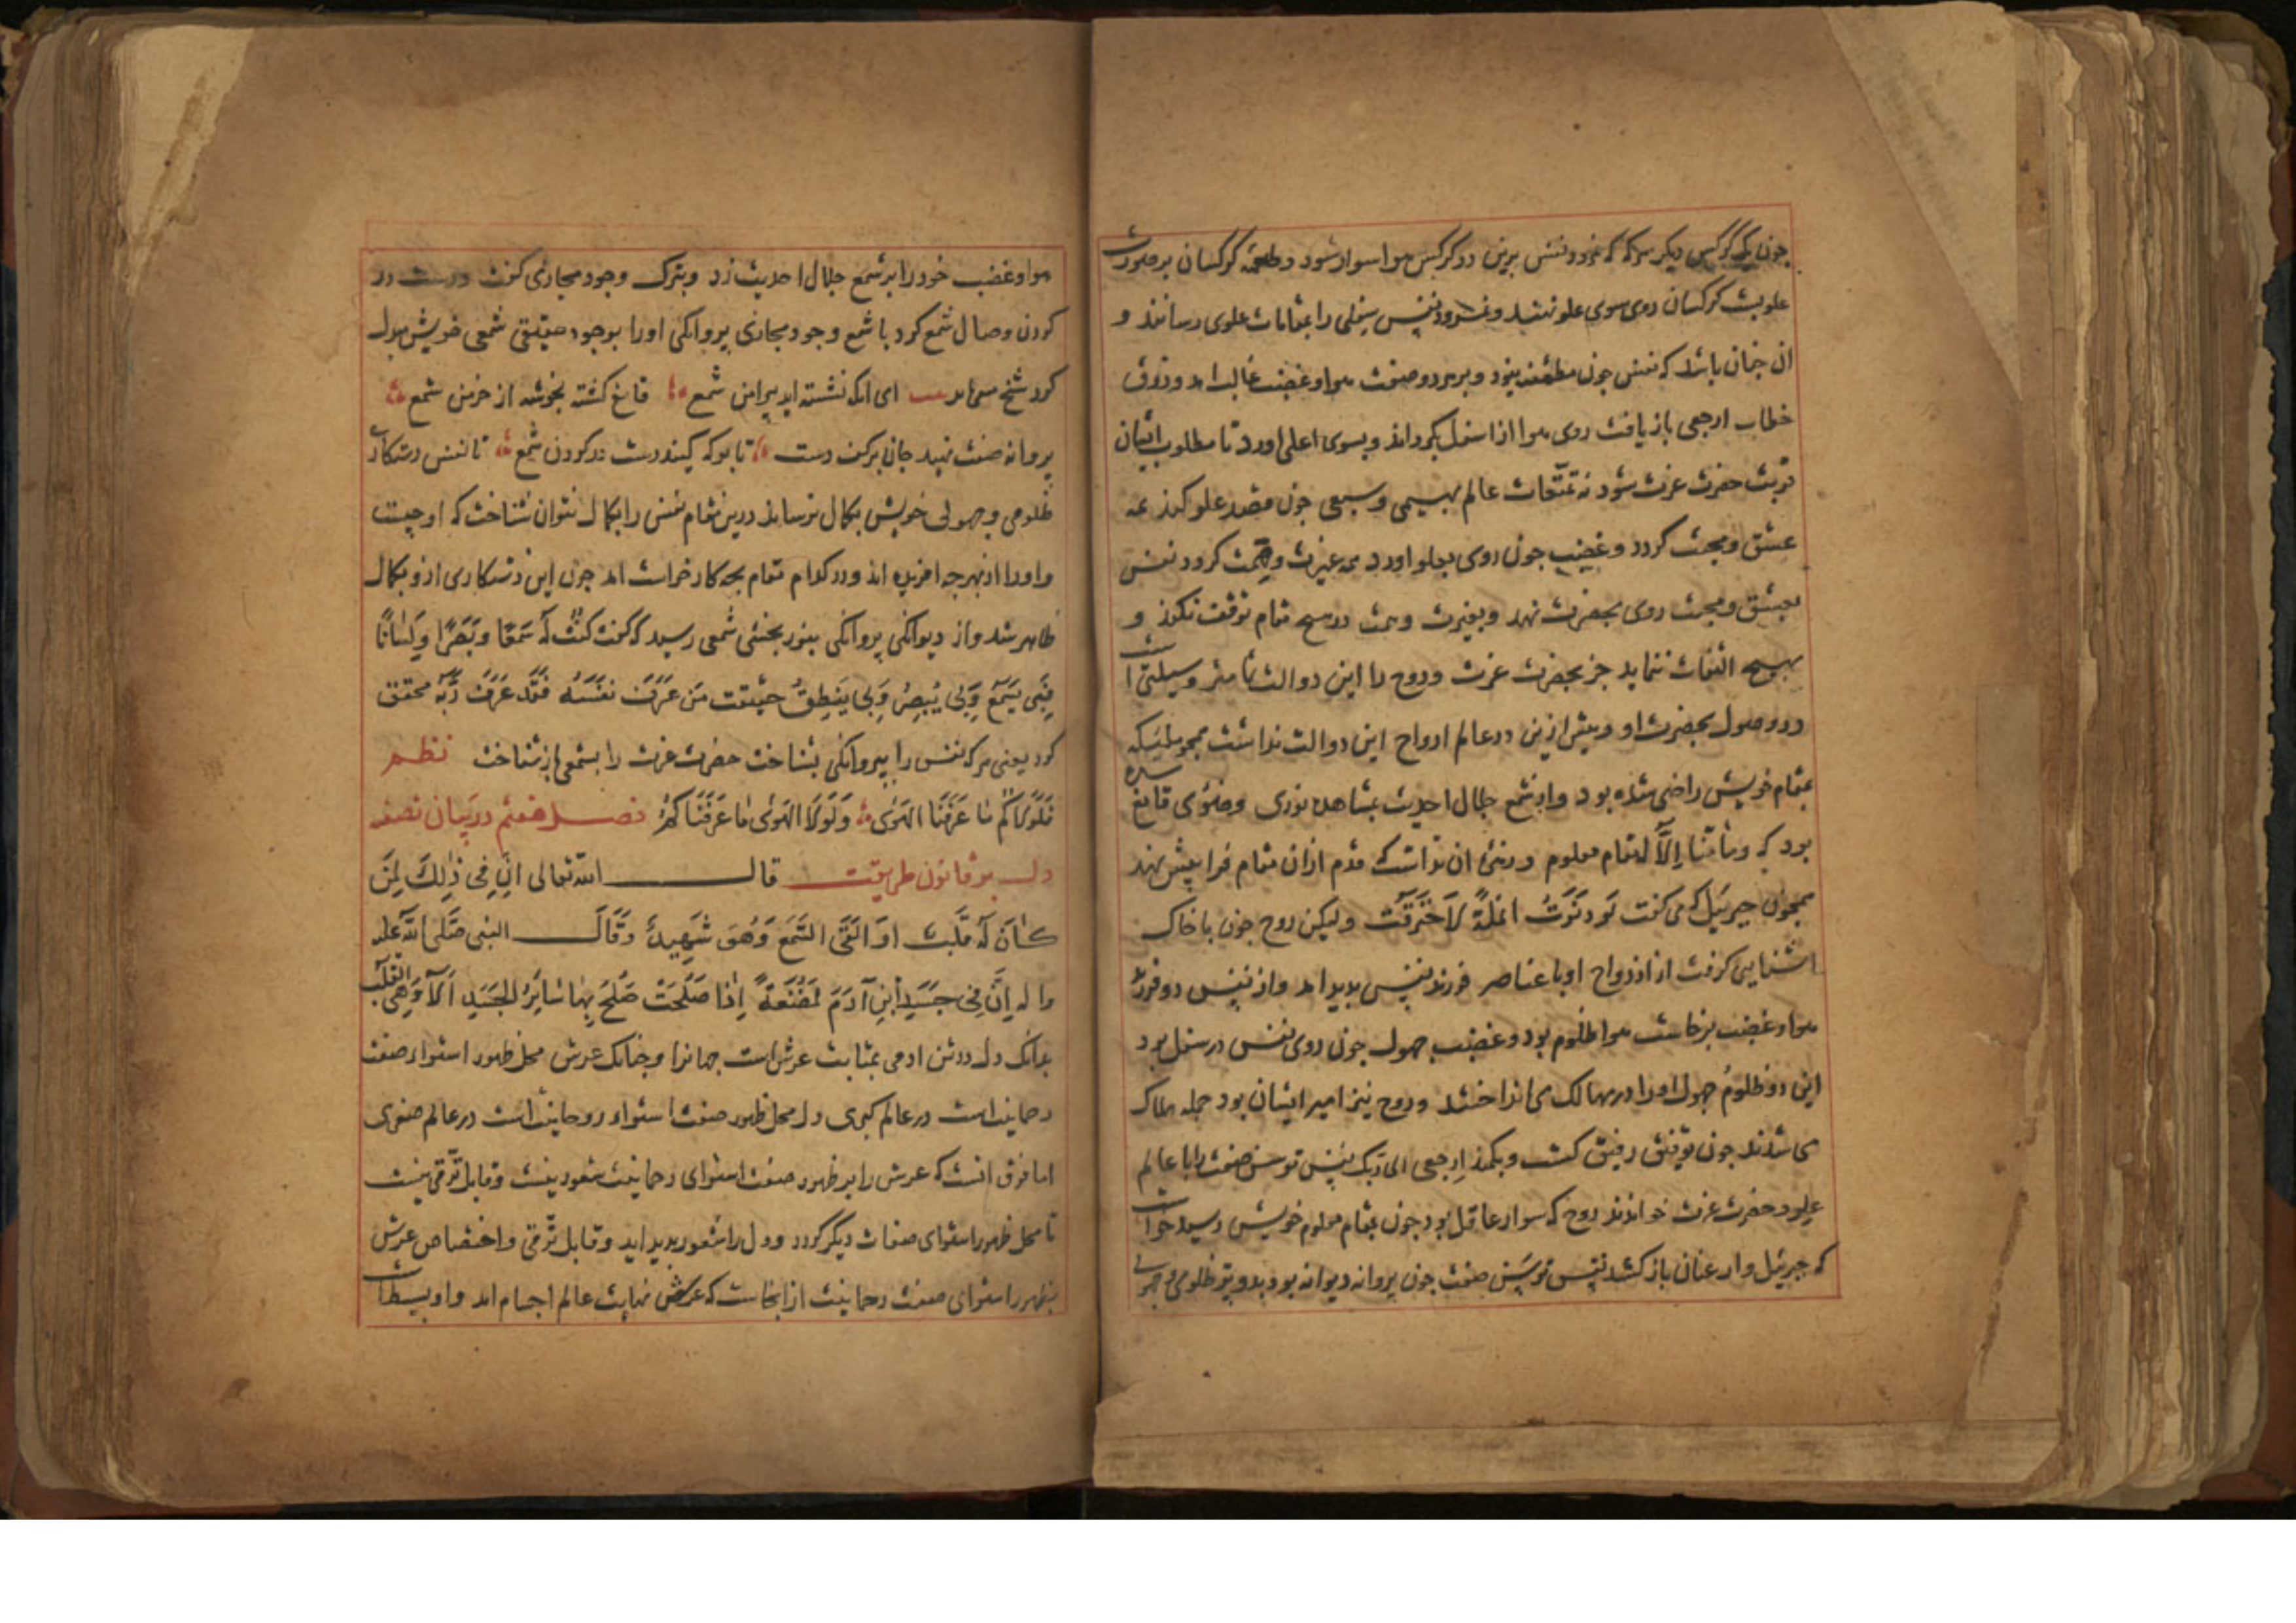 چون یک کرکس دیکر هرکه که نمرود نفس برین دو کرکس هوا سوار شود و طعمه کرکسان بر صورت
علویت کرکسان روی سوی علو نهند و نمرود نفس سفلی را بمقامات علوی رسانند و
ان چنان باشد که نفس چون مطمئنه بود و بر هر دو صفت هوا و غضب غالب امد و ذوق
خطاب ارجعی باز یافت روی هوا از اسفل بکرداند و بسوی اعلی اورد تا مطلوب ایشان
قربت حضرت عزت شود نه تمتعات عالم بهیمی و سبعی چون قصد علو کند همه
عشق و محبت کردد و غضب چون روی بعلو اورد همه غیرت و همت کردد نفس
بعشق و محبت روی بحضرت نهد و بغیرت و همت در هیچ مقام توقف نکند و
بهیچ التفات ننماید جز بحضرت عزت و روح را این دو الت تمامتر وسیلتی است
در وصول بحضرت او و پیش ازین در عالم ارواح این دو الت نداشت همچو ملئیکه
بمقام خویش راضی شده بود و از شمع جلال احدیت بمشاهده نوری و ضوئی قانع شده
بود که وما منا الا له مقام معلوم و زهره ان نداشت که قدم ازان مقام فراپیش نهد
همچون جبرئیل که می کفت لو دنوت انملة لاحترقت ولیکن روح چون با خاک
اشنایی کرفت از ازدواج او با عناصر فرزند نفس بدید امد و از نفس دو فرزند
هوا و غضب برخاست هوا ظلوم بود و غضب جهول چون روی نفس در سفل بود
این دو ظلوم جهول او را در مهالک می انداختند و روح نیز اسیر ایشان بود جمله هلاک
می شدند چون توفیق رفیق کشت و بکمند ارجعی الی ربک نفس توسن صفت را با عالم
علو و حضرت عزت خواندند روح که سوار عاقل بود چون بمقام معلوم خویش رسید خواست
که جبرئیل وار عنان باز کشد نفس توسن صفت چون پروانه دیوانه بود بدو پر ظلومی و جهولی
هوا و غضب خود را بر شمع جلال احدیت زد و بترک وجود مجازی کفت دست در
کردن وصال شمع کرد تا شمع وجود مجازی پروانکی او را بوجود حقیقی شمعی خویش مبدل
کرد ای انک نشسته اید پیرامن شمع قانع کشته بخوشه از خرمن شمع
پروانه صفت نهید جان بر کف دست تا بوکه کنید دست در کردن شمع تا نفس دستکاری
ظلومی و جهولی خویش بکمال نرساند درین مقام نفس را بکمال نتوان شناخت که او چیست
و او را از بهر چه افریده اند و در کدام مقام بچه کار خواست امد چون این دستکاری ازو بکمال
ظاهر شد و از دیوانکی پروانکی بنور بخشی شمعی رسید که کنت له سمعا وبصرا ولسانا
فبی یسمع وبی یبصر وبی ینطق حقیقت من عرف نفسه فقد عرف ربه محقق
کردد یعنی هرکه نفس را بپروانکی بشناخت حضرت عزت را بشمعی باز شناخت نظم
فلولاکم ما عرفنا الهوی ولولا الهوی ما عرفناکم فصل هفتم در بیان تصفیه
دل بر قانون طریقت قال الله تعالی ان فی ذلک لمن
کان له قلب او القی السمع وهو شهید وقال النبی صلی الله علیه
واله ان فی جسد ابن آدم لمضغة اذا صلحت صلح بها سایر الجسد الا وهی القلب
بدانک دل در تن ادمی بمثابت عرش است جهانرا و چنانک عرش محل ظهور استواء صفت
رحمانیت است در عالم کبری دل محل ظهور صفت استواء روحانیت است در عالم صغری
اما فرق انست که عرش را بر ظهور صفت استوای رحمانیت شعور نیست و قابل ترقی نیست
تا محل ظهور استوای صفات دیکر کردد و دل را شعور بدید اید و قابل ترقی و اختصاص عرش
بظهور استوای صفت رحمانیت از انجاست که عرش نهایت عالم اجسام امد و او بسیط است